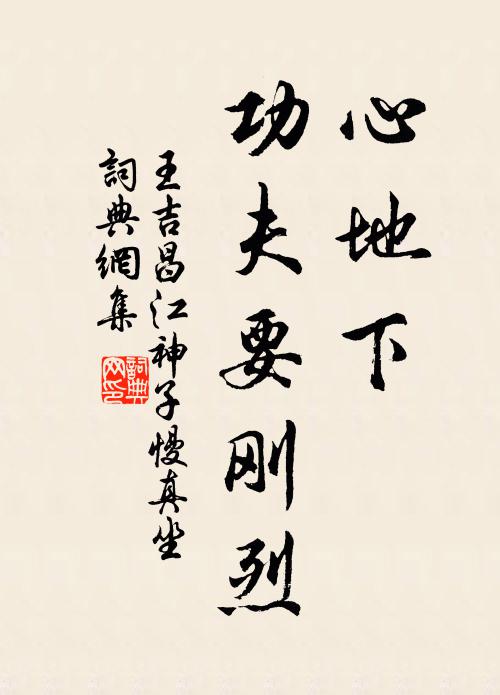 心地下
功夫要刚烈
王吉昌江神子慢真坐
詞典網集
詞典
网印